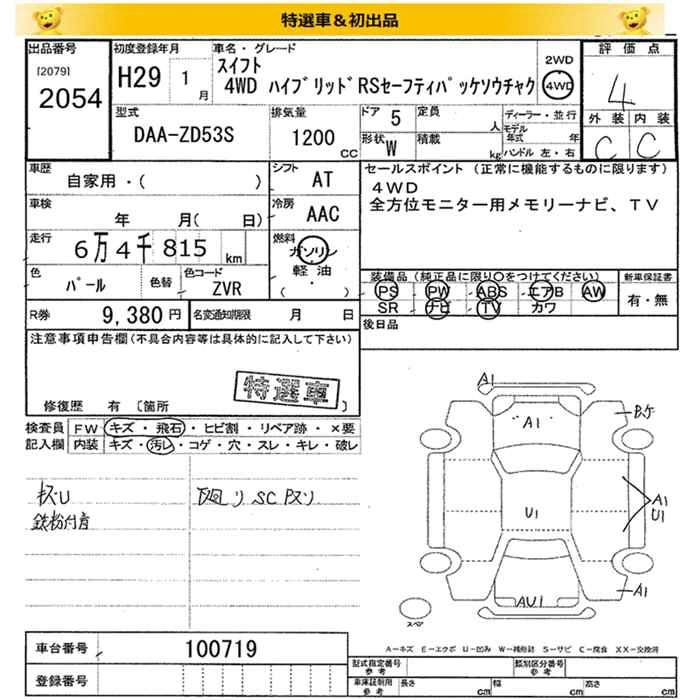 特選車＆初出品
出品番号
[2079]
2054
初度登録年月
H29 1月
車名・グレード
スイフト
4WD ハイブリッドRSセーフティパッケソウチャク
2WD
4WD
評価点
4
外装 内装
C C
型式
DAA-ZD53S
排気量
1200 CC
ドア 5
定員 人
形状 W
積載 kg
ディーラー・並行
モデル年式 年
ハンドル 左・右
車歴
自家用・( )
シフト AT
車検
年 月( 日)
冷房 AAC
走行
6万4千815 km
燃料
ガソリン
軽油
( ・ )
色
パール
色替
色コード
ZVR
R券 9,380円
名変通知期限 月 日
セールスポイント (正常に機能するものに限ります)
4WD
全方位モニター用メモリーナビ、TV
装備品 (純正品に限り○をつけてください)
新車保証書
PS PW ABS エアB AW
SR ナビ TV カワ
有・無
後日品
注意事項申告欄(不具合内容等は具体的に記入して下さい)
特選車
修復歴 有 [箇所
検査員記入欄
FW キズ・飛石・ヒビ割・リペア跡・×要
内装 キズ・汚レ・コゲ・穴・スレ・キレ・破レ
キズU
鉄粉付着
下廻り SC
A1
A1
U1
A1
U1
A1
AU1
スペア
A-キズ E-エクボ U-凹み W-補修跡 S-サビ C-腐食 XX-交換済
車台番号 100719
登録番号
型式指定番号 参考
類別区分番号 参考
車庫証明用 参考
長さ cm
幅 cm
高さ cm